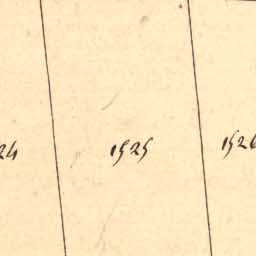 24 1525 1526